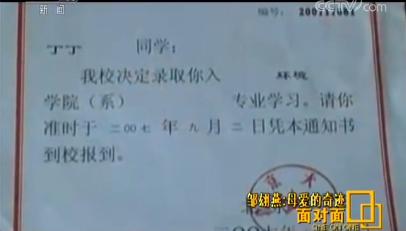 新闻
CCTV.com
编号：
丁丁 同学：
我校决定录取你入 环境
学院（系） 专业学习。请你
准时于 二00七 年 九 月 二 日凭本通知书
到校报到。
邹翃燕:母爱的奇迹
面对面
ONE ON ONE